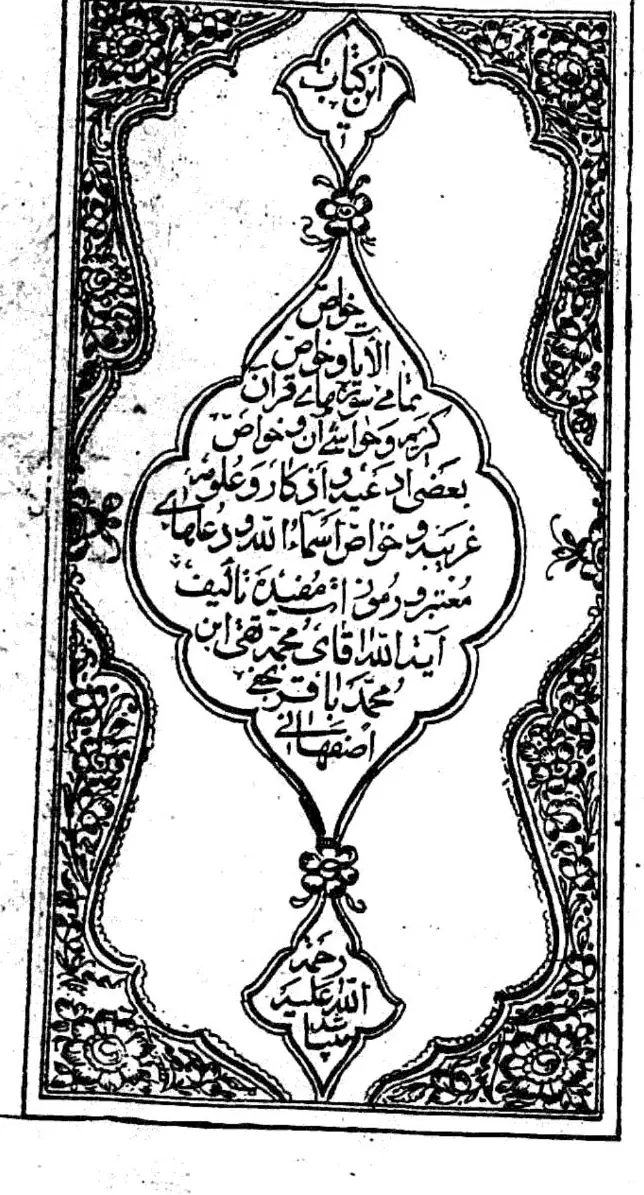 این کتاب
خواص
الآیات و خواص
تمامے سورہ هاے قرآن
کریم و حواشے آن و خواص
بعضی ادعیه و اذکار و علوم
غریبه و خواص اسماء الله و دعاهاے
معتبر و رموزات مفیده تألیف
آیة الله آقای محمد تقی ابن
محمد باقر نجفے
اصفهانے
رحمة
الله علیه
میباشد